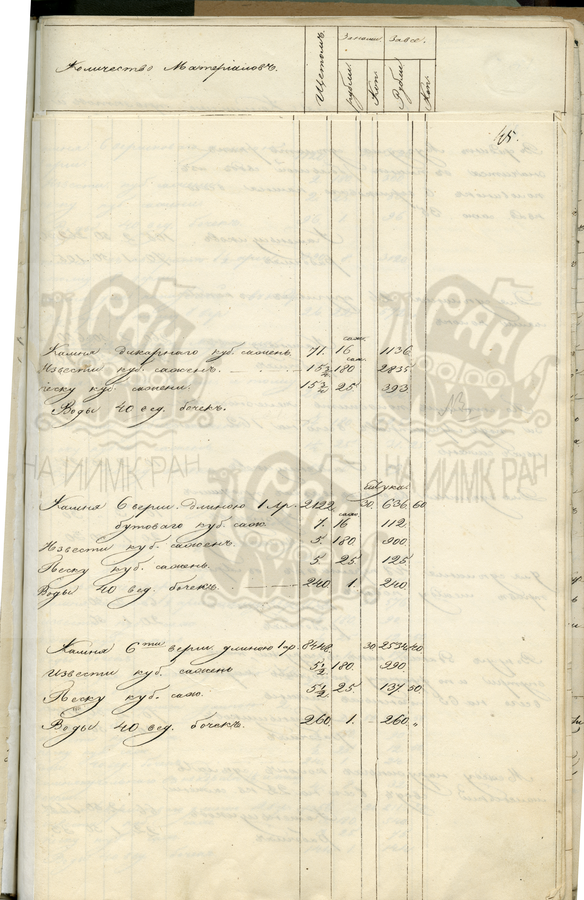 Количество Матеріаловъ. Щетомъ. За каж. За все.
Рубли. Коп. Рубли Коп.
45.
саж.
Камня дикарнаго куб. сажень. 71. 16 1136.
саж.
Извести куб. саженъ. 15¾ 180 2835
Песку куб. сажени. 15¾ 25 393
Воды 40 вед. бочекъ.
НА ИИМК РАН
НА ИИМК РАН
штука.
Камня 6 верш. длиною 1 ар. 2122 30. 636. 60
саж.
бутоваго куб. саж. 7. 16 112.
Извести куб. саженъ. 5. 180. 900
Песку куб. сажень. 5 25 125
Воды 40 вед. бочекъ. 240 1. 240
Камня 6ти верш. длиною 1 ар. 8448. 30 2534. 40
Извести куб. саженъ 5½ 180. 990.
Песку куб. саж. 5½ 25 137 50
Воды 40 вед. бочекъ. 260 1. 260